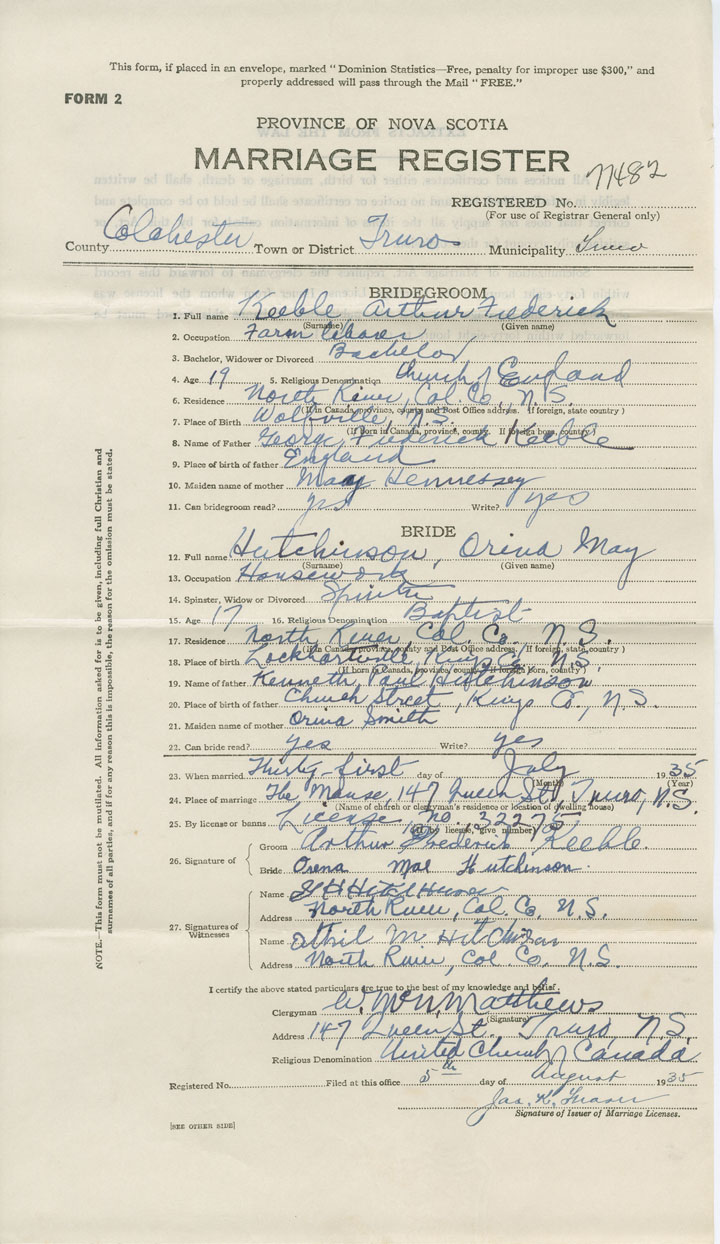 This form, if placed in an envelope, marked " Dominion Statistics—Free, penalty for improper use $300," and
properly addressed will pass through the Mail " FREE."
FORM 2
PROVINCE OF NOVA SCOTIA
MARRIAGE REGISTER
77482
REGISTERED No.
(For use of Registrar General only)
County Colchester Town or District Truro Municipality Truro
BRIDEGROOM
1. Full name Keeble Arthur Frederick
(Surname) (Given name)
2. Occupation Farm labourer
3. Bachelor, Widower or Divorced Bachelor
4. Age 19 5. Religious Denomination Church of England
6. Residence North River, Col. Co., N.S.
(If in Canada, province, county and Post Office address. If foreign, state country )
7. Place of Birth Wolfville, N.S.
(If born in Canada, province, county. If foreign born, country.)
8. Name of Father George Frederick Keeble
9. Place of birth of father England
10. Maiden name of mother May Hennessey
11. Can bridegroom read? yes Write? yes
BRIDE
12. Full name Hutchinson, Orina May
(Surname) (Given name)
13. Occupation Housework
14. Spinster, Widow or Divorced Spinster
15. Age 17 16. Religious Denomination Baptist
17. Residence North River, Col. Co., N.S.
(If in Canada, province, county and Post Office address. If foreign, state country )
18. Place of birth Lockhartville, Kings Co., N.S.
(If born in Canada, province, county. If foreign born, country.)
19. Name of father Kenneth Paul Hutchinson
20. Place of birth of father Church Street, Kings Co., N.S.
21. Maiden name of mother Orina Smith
22. Can bride read? yes Write? yes
23. When married Thirty-first day of July 1935
(Month) (Year)
24. Place of marriage The Manse, 147 Queen St., Truro, N.S.
(Name of church or clergyman's residence or location of dwelling house)
25. By license or banns License, no. 32275
(If by license, give number)
26. Signature of
Groom Arthur Frederick Keeble.
Bride Orena Mae Hutchinson.
27. Signatures of
Witnesses
Name
Address North River, Col. Co. N.S.
Name M
Address North River, Col Co. N.S.
NOTE.—This form must not be mutilated. All information asked for is to be given, including full Christian and
surnames of all parties, and if for any reason this is impossible, the reason for the omission must be stated.
I certify the above stated particulars are true to the best of my knowledge and belief.
Clergyman Matthews
(Signature)
Address 147 Queen St. Truro N.S.
Religious Denomination United Church of Canada
Registered No. Filed at this office 5th day of August 1935
Jas. K. Fraser
Signature of Issuer of Marriage Licenses.
[SEE OTHER SIDE]